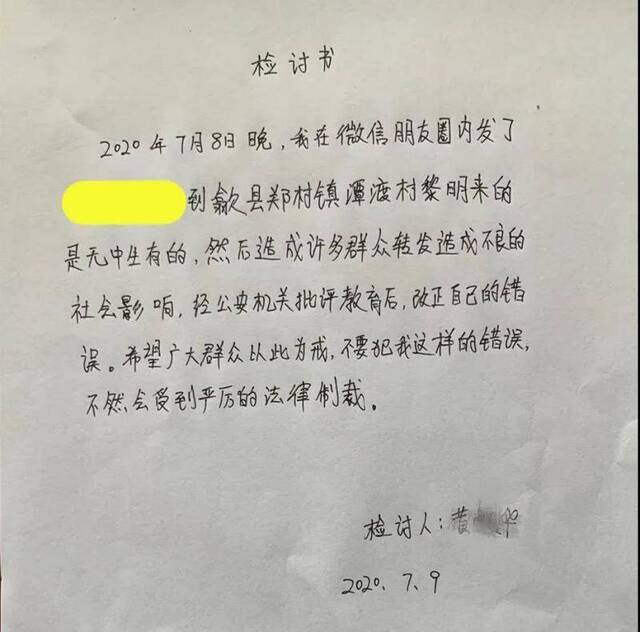 检讨书
2020年7月8日晚，我在微信朋友圈内发了
到歙县郑村镇潭渡村黎明来的
是无中生有的，然后造成许多群众转发造成不良的
社会影响，经公安机关批评教育后，改正自己的错
误。希望广大群众以此为戒，不要犯我这样的错误，
不然会受到严厉的法律制裁。
检讨人：黄
2020.7.9